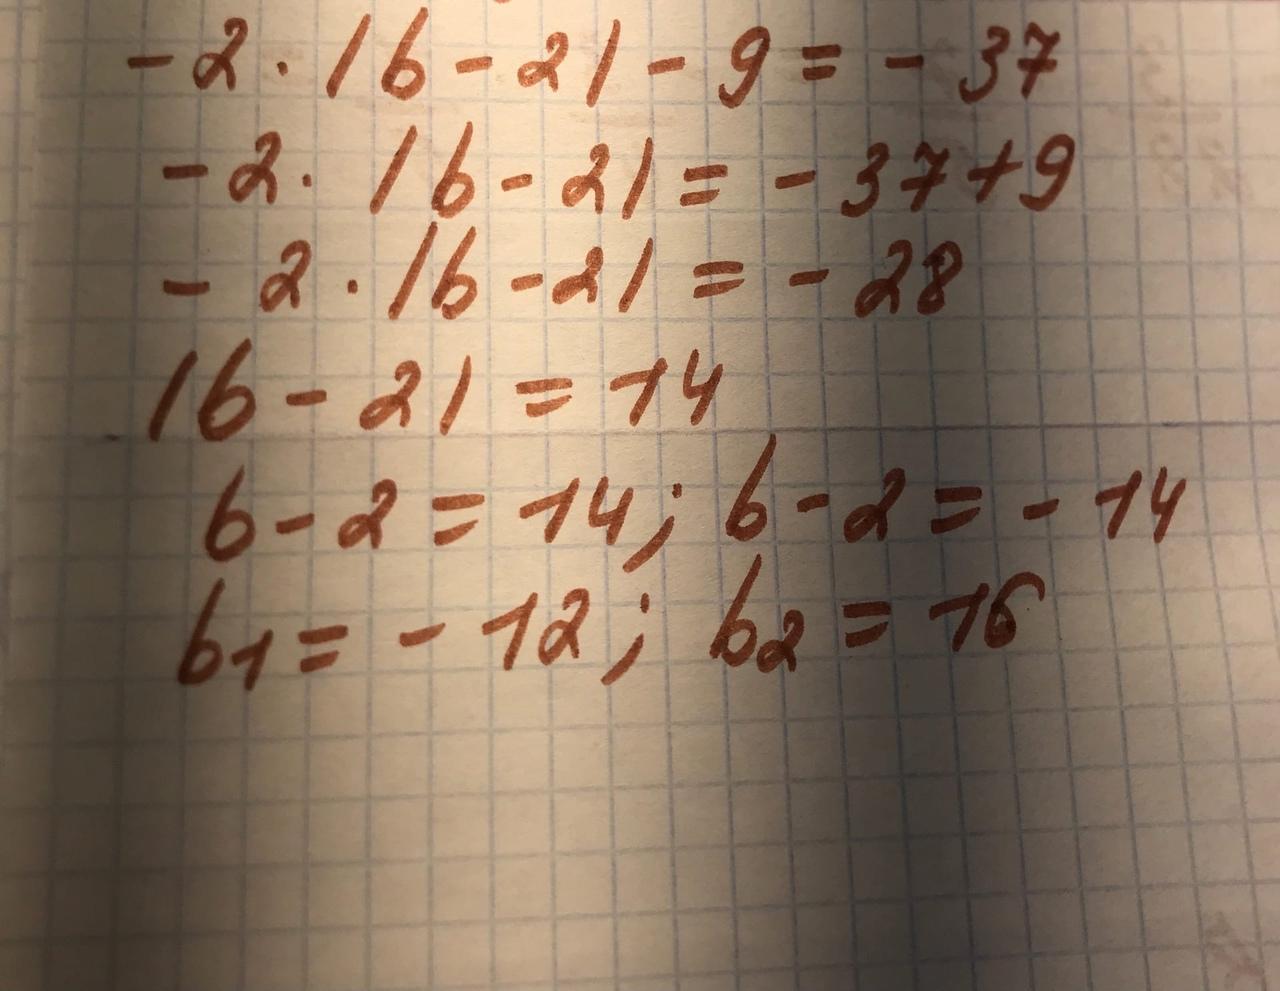 -2·|b-2|-9=-37
-2·|b-2|=-37+9
-2·|b-2|=-28
|b-2|=14
b-2=14; b-2=-14
b1=-12; b2=16